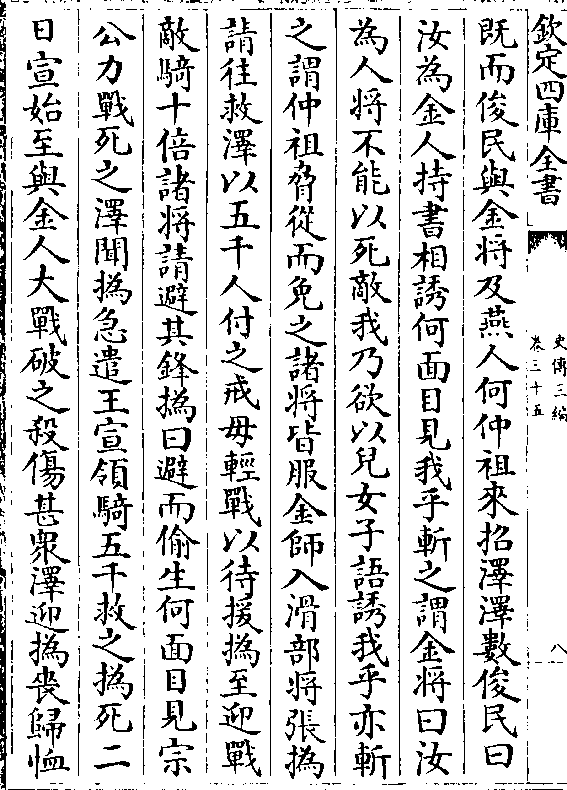 欽定四庫全書
史傳三編
卷三十五
八
既而俊民與金將及燕人何仲祖來招澤澤數俊民曰
汝為金人持書相誘何面目見我乎斬之謂金將曰汝
為人將不能以死敵我乃欲以兒女子語誘我乎亦斬
之謂仲祖脅從而免之諸將皆服金師入滑部將張撝
請往救澤以五千人付之戒毋輕戰以待援撝至迎戰
敵騎十倍諸將請避其鋒撝曰避而偷生何面目見宗
公力戰死之澤聞撝急遣王宣領騎五千救之撝死二
日宣始至與金人大戰破之殺傷甚衆澤迎撝喪歸恤